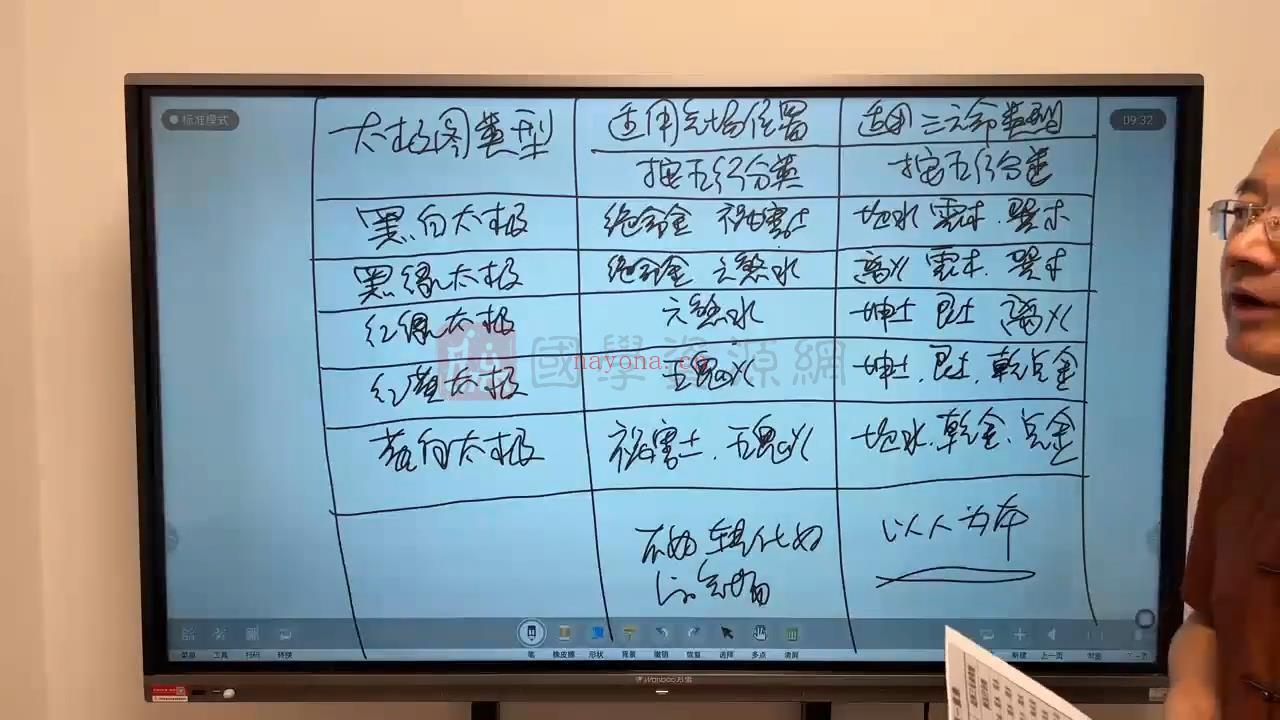 标准模式
09:32
太极图类型 适用气场位置 适用三元命类型
按五行分类 按五行分类
黑白太极 绝命金 祸害土 坎水 震木.巽木
黑绿太极 绝命金 六煞水 离火 震木.巽木
红绿太极 六煞水 坤土 艮土 离火
红黄太极 五鬼火 坤土.艮土.乾兑金
黄白太极 祸害土.五鬼火 坎水.乾金.兑金
不好 转化好 以人为本
的气场
國學資源網
nayona.cn
菜单 工具 扫码 转换 笔 橡皮擦 形状 背景 撤销 恢复 选择 多点 清屏 新建 上一页
Wanbao万宝